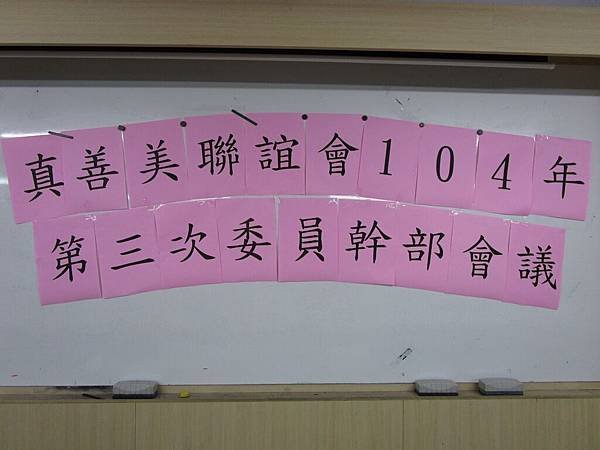 真善美聯誼會104年
第三次委員幹部會議